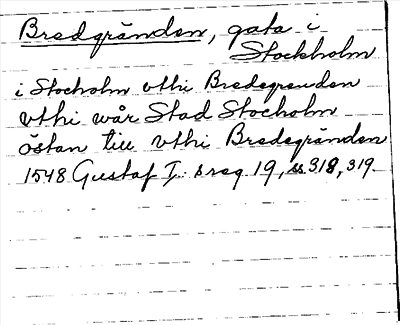 Bredgränden, gata i
Stockholm
i Stocholm vthi Bredegrenden
vthi wår Stad Stocholm
östan till vthi Bredegränden
1548 Gustaf I: s reg. 19, ss 318, 319.